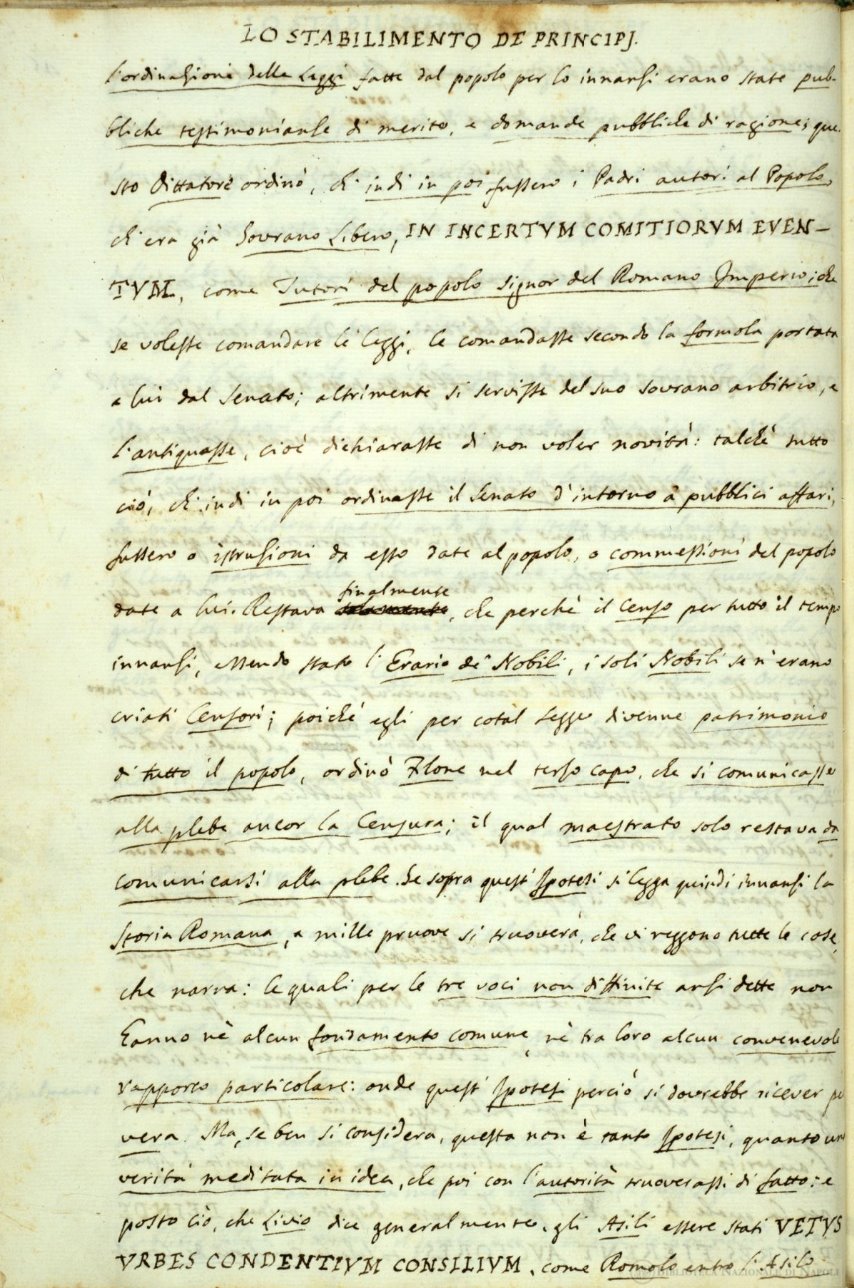 LO STABILIMENTO DE' PRINCIPJ.
l'ordinazioni delle Leggi fatte dal popolo per lo innanzi erano state pub-
bliche testimonianze di merito, e domande pubbliche di ragione; que-
sto Dittatore ordinò, ch'indi in poi fussero i Padri autori al Popolo,
ch'era già Sovrano Libero, IN INCERTVM COMITIORVM EVEN-
TVM, come Tutori del popolo signor del Romano Imperio; che
se volesse comandare le leggi, le comandasse secondo la formola portata
a lui dal Senato; altrimente si servisse del suo sovrano arbitrio, e
l'antiquasse, cioè dichiarasse di non voler novità: talchè tutto
ciò, ch'indi in poi ordinasse il Senato d'intorno a' pubblici affari,
fussero o istruzioni da esso date al popolo, o commessioni del popolo
date a lui. Restava finalmente, che perchè il Censo per tutto il tempo
innanzi, essendo stato l'Erario de' Nobili, i soli Nobili se n'erano
criati Censori; poichè egli per cotal Legge divenne patrimonio
di tutto il popolo, ordinò Filone nel terzo capo, che si comunicasse
alla plebe ancor la Censura; il qual maestrato solo restava da
comunicarsi alla plebe. Se sopra quest'Ipotesi si legga quindi innanzi la
Storia Romana, a mille pruove si truoverà, che vi reggono tutte le cose,
che narra: le quali per le tre voci non diffinite anzi dette non
hanno nè alcun fondamento comune, nè tra loro alcun convenevole
rapporto particolare: onde quest'Ipotesi perciò si dovrebbe ricever per
vera. Ma, se ben si considera, questa non è tanto Ipotesi, quanto una
verità meditata in idea, che poi con l'autorità truoverassi di fatto: e
posto ciò, che Livio dice generalmente, gli Asili essere stati VETVS
VRBES CONDENTIVM CONSILIVM, come Romolo entro l'Asilo
BIBLIOTECA NAZIONALE DI NAPOLI